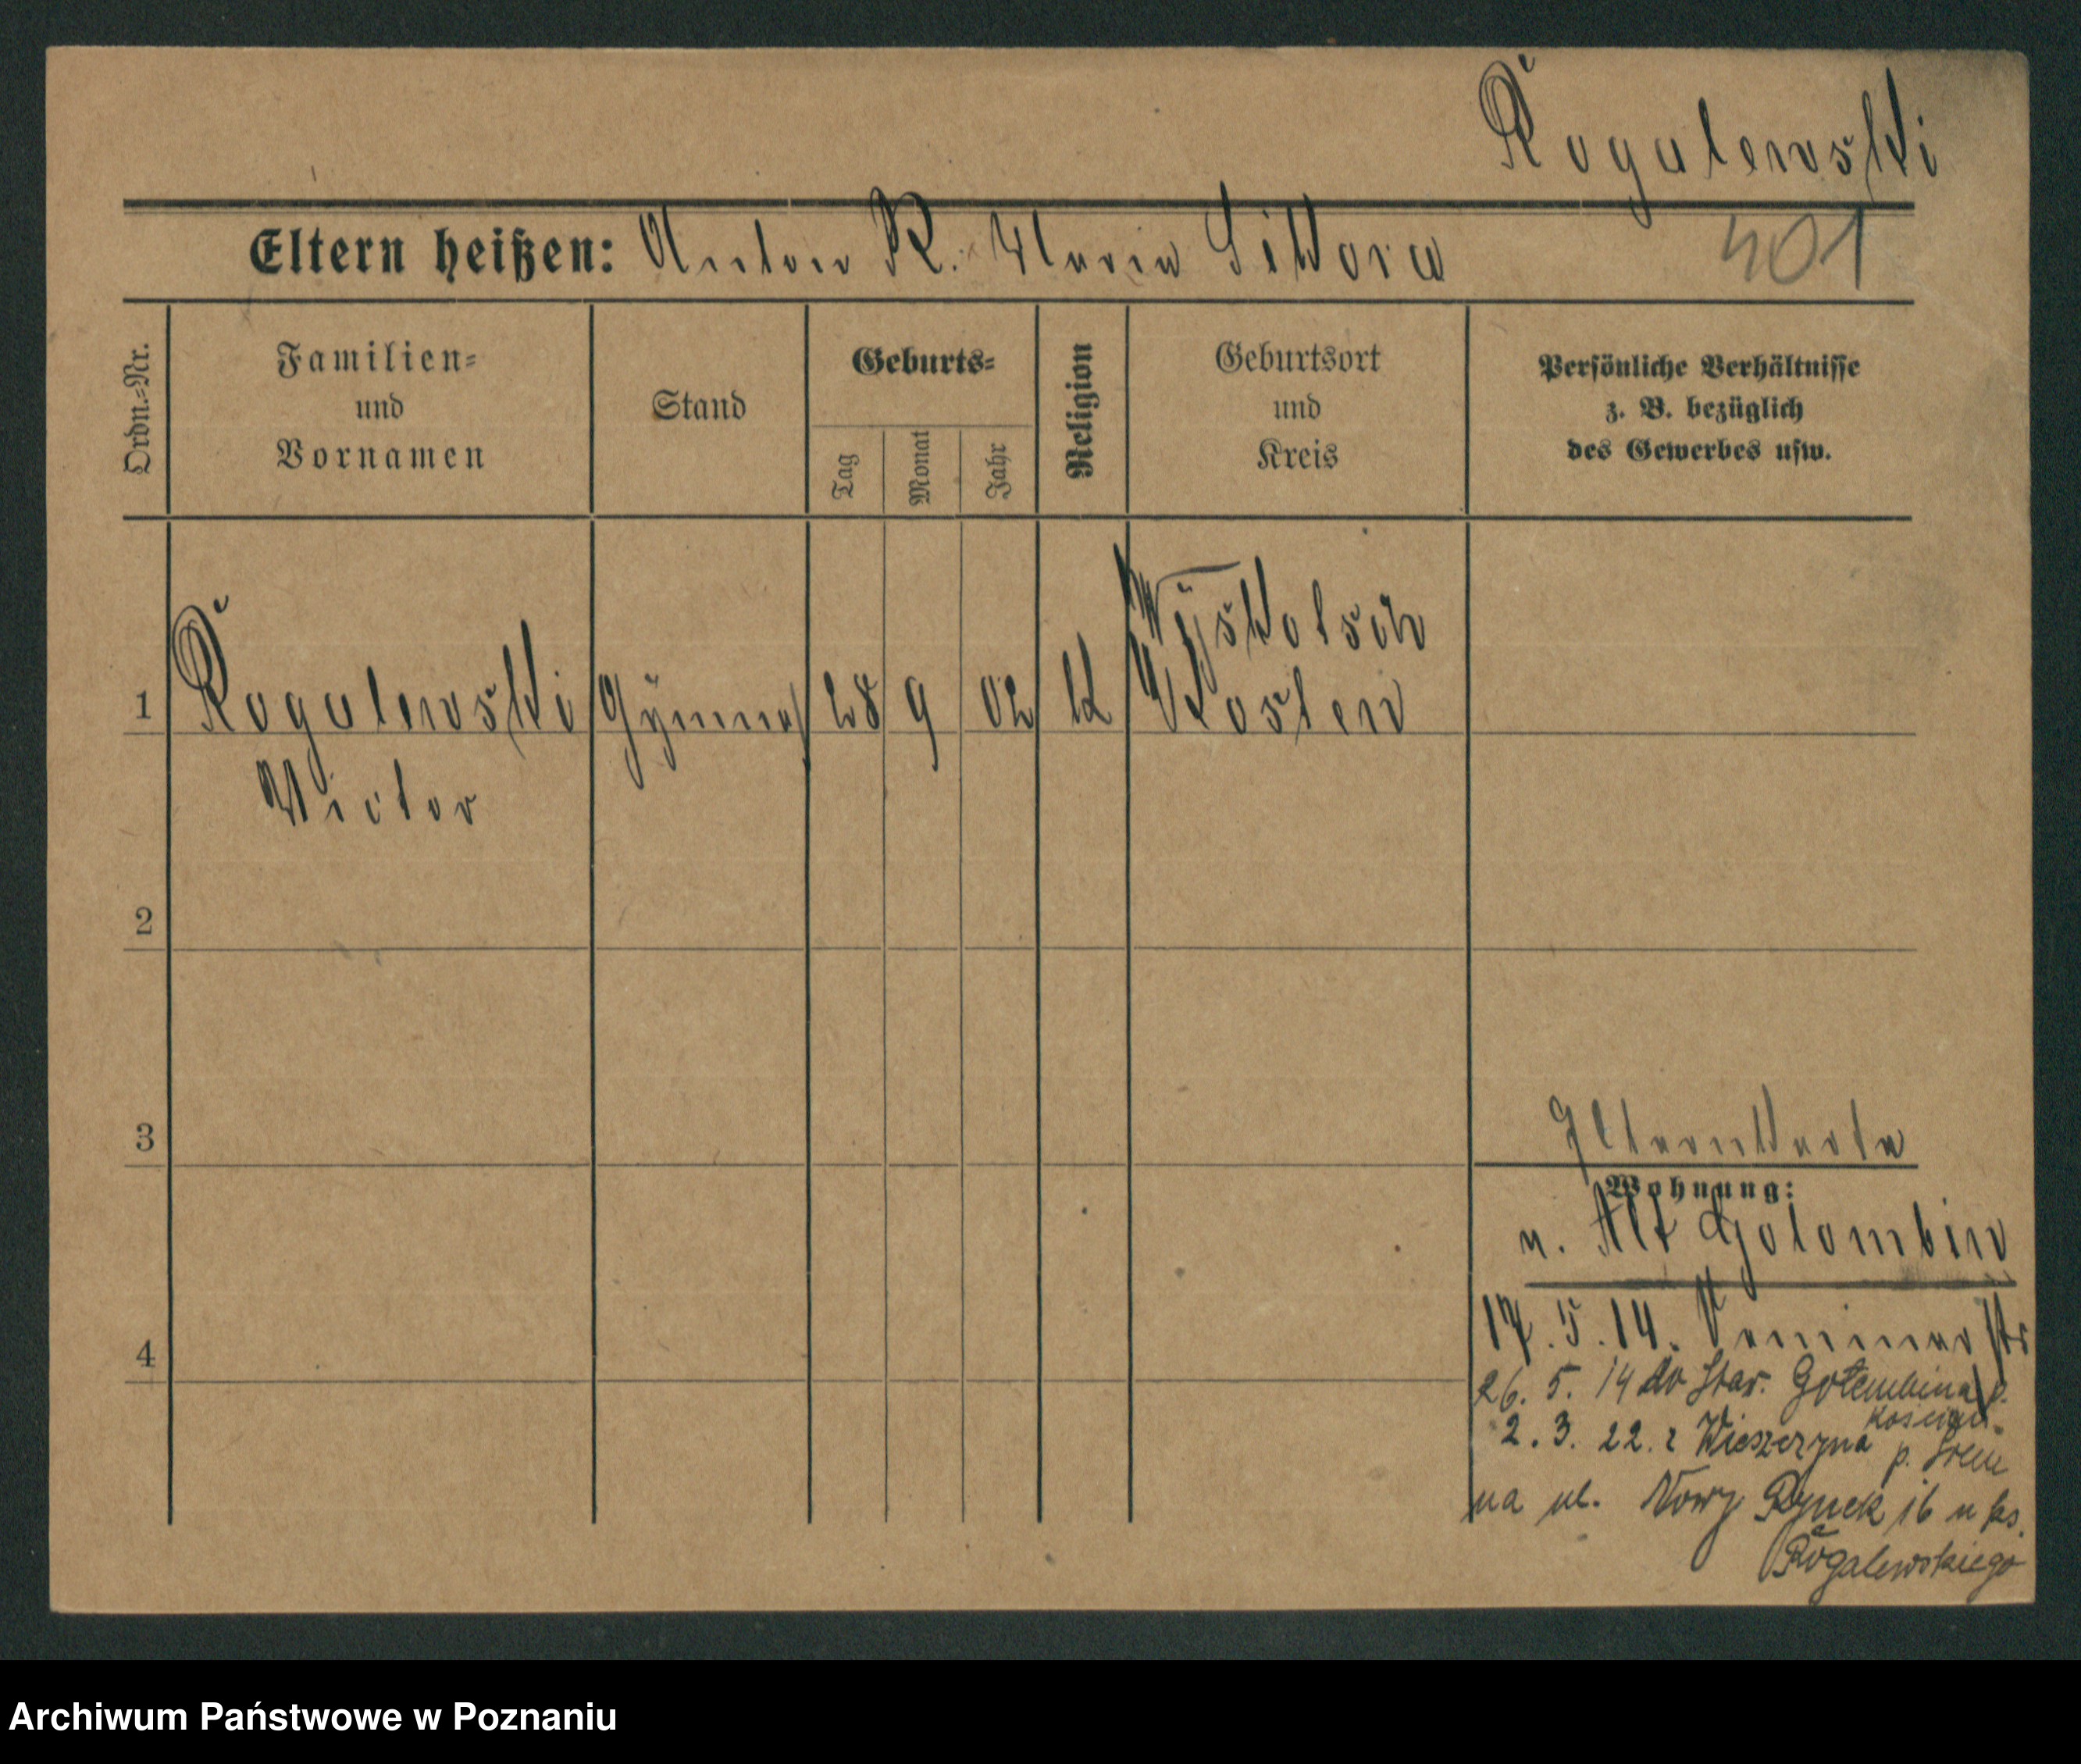 Rogalewski
Eltern heißen: Anton R. Maria Sikora
401
Ordn.-Nr.
Familien-
und
Vornamen
Stand
Geburts-
Tag
Monat
Jahr
Religion
Geburtsort
und
Kreis
Persönliche Verhältnisse
z. B. bezüglich
des Gewerbes usw.
1 Rogalewski Gymnas 28 9 02 K Kosten
Victor
2
3
4
Wohnung:
n. Alt Golombin
17.5.14. Seminar str
26. 5. 14 do Star. Gołembina p.
Kościan.
2. 3. 22. z Wieszczyna p. Śrem
na ul. Nowy Rynek 16 u ks.
Rogalewskiego
Archiwum Państwowe w Poznaniu